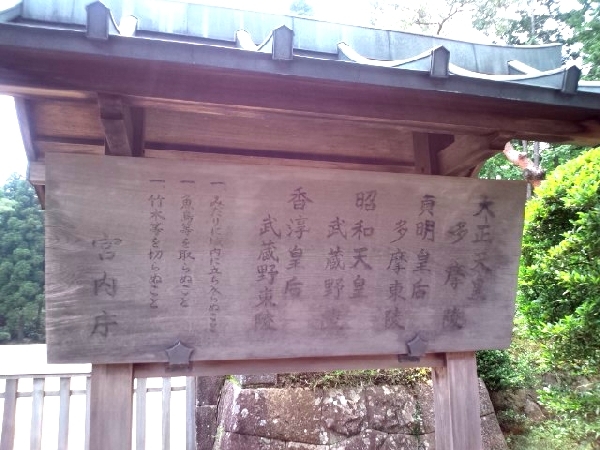 大正天皇
多摩陵
貞明皇后
多摩東陵
昭和天皇
武蔵野陵
香淳皇后
武蔵野東陵
一 みだりに域内に立ち入らぬこと
一 魚鳥等を取らぬこと
一 竹木等を切らぬこと
宮内庁